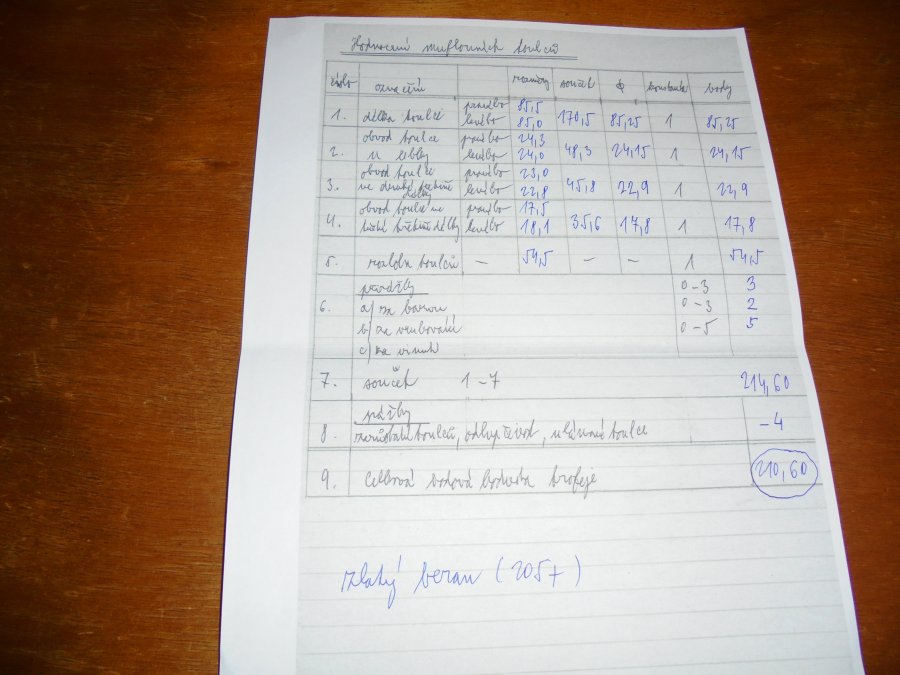 Hodnocení muflonních toulců
číslo označení rozměry součet ϕ konstanta body
1. délka toulce pravého 85,5
levého 85,0 170,5 85,25 1 85,25
obvod toulce pravého 24,3
2. u lebky levého 24,0 48,3 24,15 1 24,15
obvod toulce pravého 23,0
3. ve druhé třetině délky levého 22,8 45,8 22,9 1 22,9
obvod toulce ve pravého 17,5
4. třetí třetině délky levého 18,1 35,6 17,8 1 17,8
5. rozloha toulců – 54,5 – – 1 54,5
přirážky 0–3 3
6. a/ za barvu 0–3 2
b/ za vrubování 0–5 5
c/ za vinutí
7. součet 1–7 214,60
srážky –4
8. zarůstání toulců, odlup. toulce
9. Celková bodová hodnota trofeje 210,60
zlatý beran (205+)